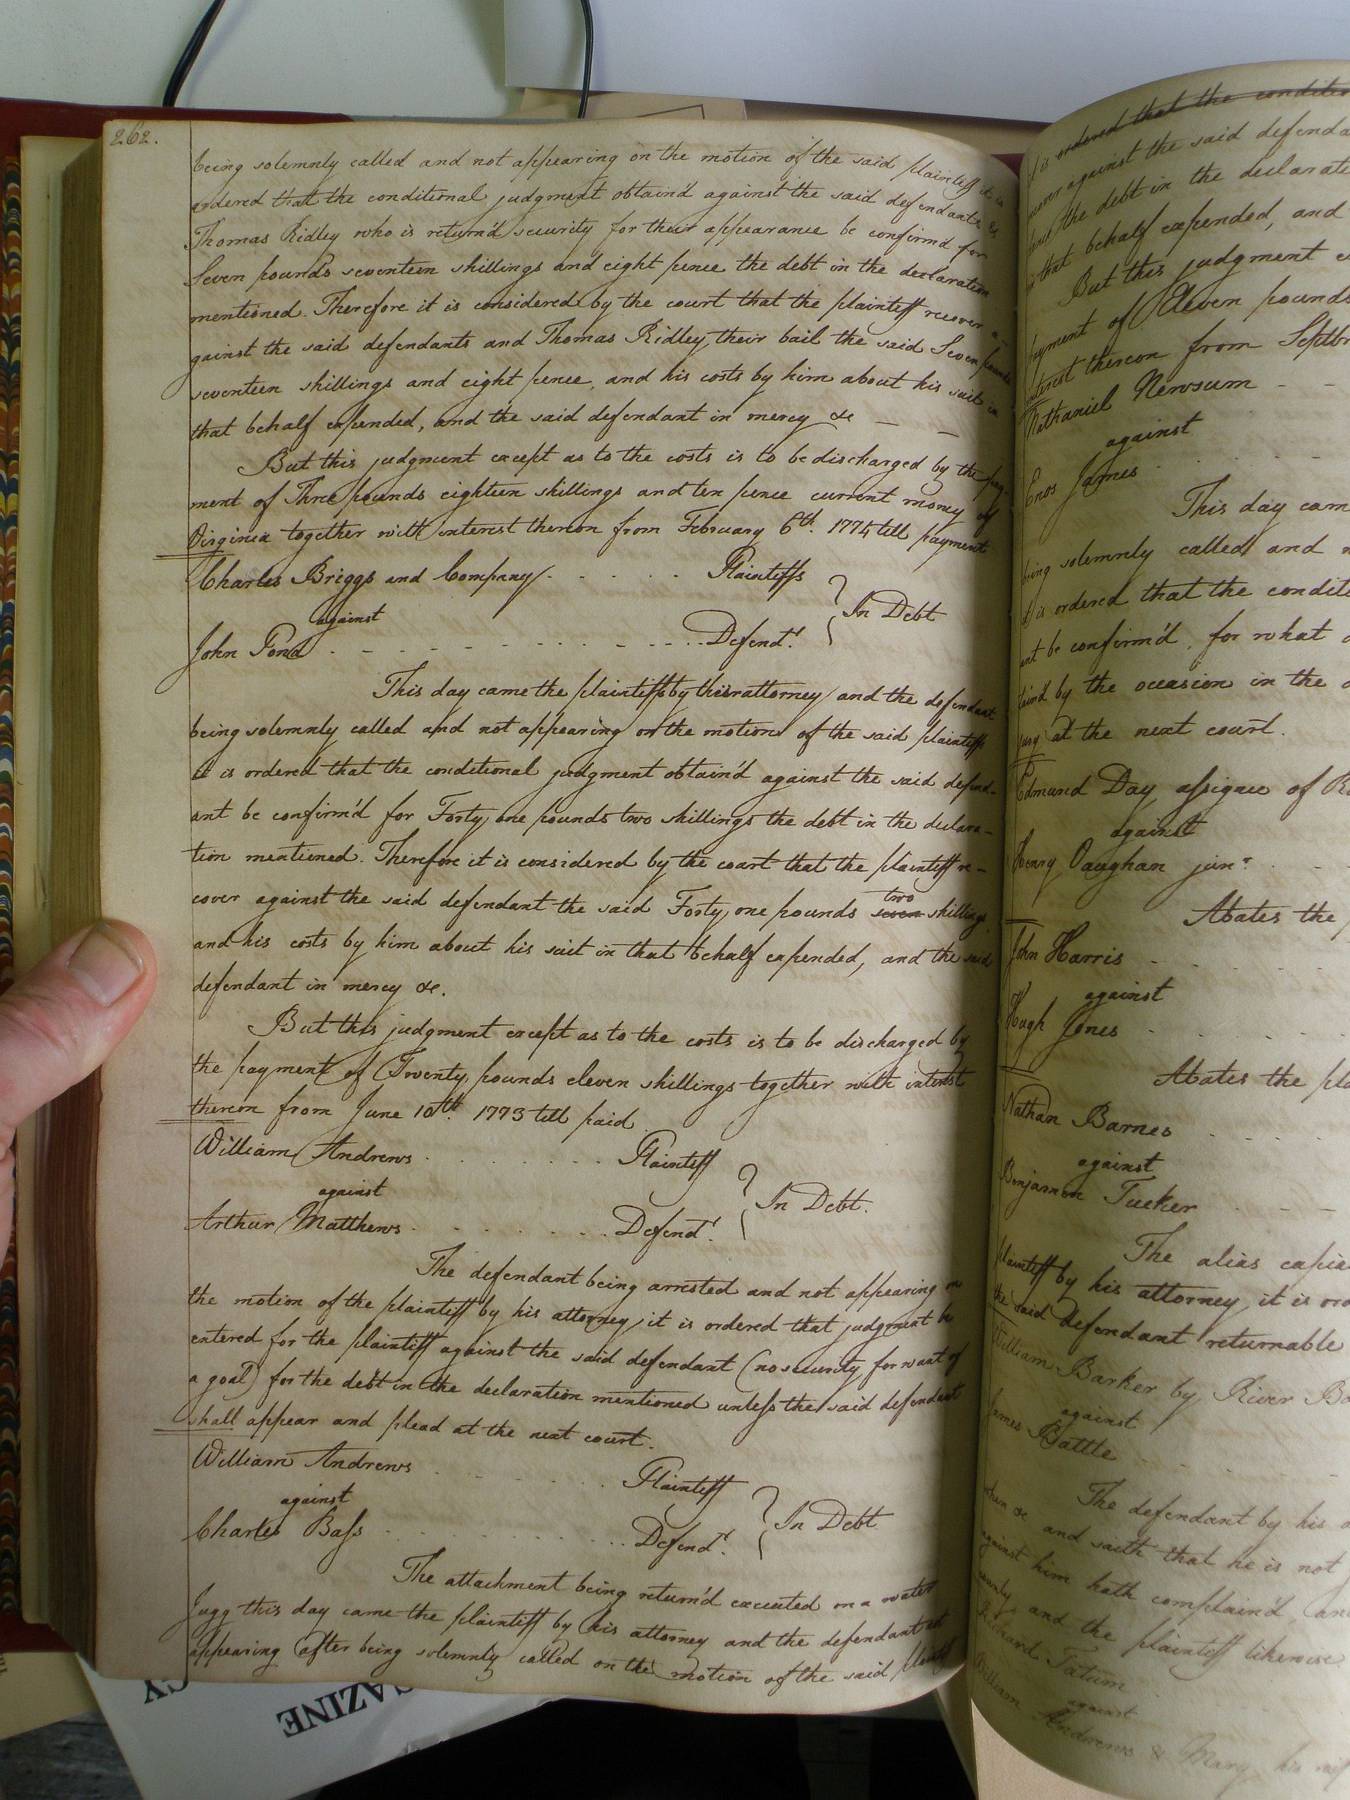 262.
being solemnly called and not appearing on the motion of the said plaintiff it is
ordered that the conditional judgment obtain'd against the said defendants &
Thomas Ridley who is return'd security for their appearance be confirm'd for
Seven pounds seventeen shillings and eight pence the debt in the declaration
mentioned. Therefore it is considered by the court that the plaintiff recover a-
gainst the said defendants and Thomas Ridley their bail the said Seven pounds
seventeen shillings and eight pence, and his costs by him about his suit in
that behalf expended, and the said defendant in mercy &c
But this judgment except as to the costs is to be discharged by the pay-
ment of Three pounds eighteen shillings and ten pence current money of
Virginia together with interest thereon from February 6th. 1774 till payment
Charles Briggs and Company Plaintiffs
against
In Debt
John Pond Defendt.
This day came the plaintiffs by their attorney and the defendant
being solemnly called and not appearing on the motion of the said plaintiffs
it is ordered that the conditional judgment obtain'd against the said defend-
ant be confirm'd for Forty one pounds two shillings the debt in the declara-
tion mentioned. Therefore it is considered by the court that the plaintiff re-
cover against the said defendant the said Forty one pounds seven two shillings
and his costs by him about his suit in that behalf expended, and the said
defendant in mercy &c.
But this judgment except as to the costs is to be discharged by
the payment of Twenty pounds eleven shillings together with interest
thereon from June 10th. 1773 till paid
William Andrews Plaintiff
against
In Debt.
Arthur Matthews Defendt.
The defendant being arrested and not appearing on
the motion of the plaintiff by his attorney, it is ordered that judgment be
entered for the plaintiff against the said defendant (no security for want of
a goal) for the debt in the declaration mentioned unless the said defendant
shall appear and plead at the next court.
William Andrews Plaintiff
against
In Debt
Charles Bass Defendt.
The attachment being return'd executed on a water
Jugg this day came the plaintiff by his attorney and the defendant not
appearing after being solemnly called on the motion of the said plaintiff
is ordered that the condition
recover against the said defenda
the debt in the declarate
that behalf expended, and
But this judgment
payment of Eleven pounds
interest thereon from Septbr
Nathaniel Newsum
against
Enos James
This day cam
being solemnly called and
it is ordered that the condit
ant be confirm'd, for what
tain'd by the occasion in the
jury at the next court.
Edmund Day assignee of
against
Henry Vaughan junr.
Abates the
John Harris
against
Hugh Jones
Abates the pla
Nathan Barnes
against
Benjamin Tucker
The alias capia
plaintiff by his attorney, it is or
the said defendant returnable
William Barker by River
against
James Battle
The defendant by his a
when &c and saith that he is not
against him hath complain'd, an
and the plaintiff likewise
Richard Tatum
against
William Andrews & Mary his wif
AZINE
CY